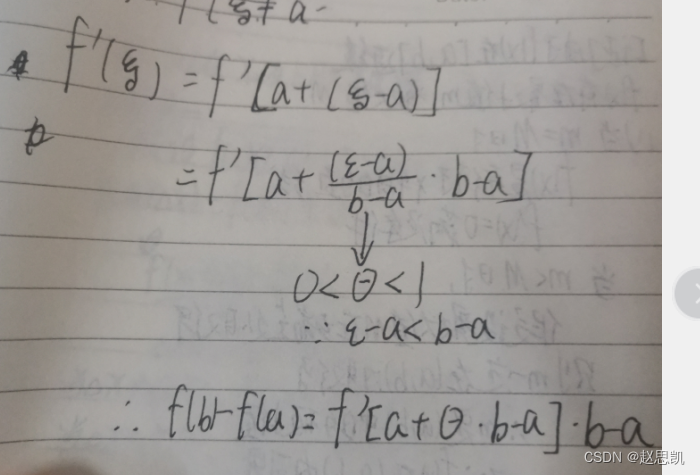 f'(ξ) = f'[a+(ξ-a)]
= f'[a+ (ξ-a)/b-a · b-a]
↓
0<θ<1
∵ ξ-a<b-a
∴ f(b)-f(a)= f'[a+θ·b-a]·b-a
CSDN @赵思凯